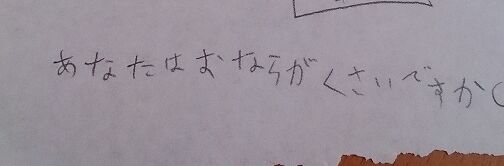 あなたはおならがくさいですか